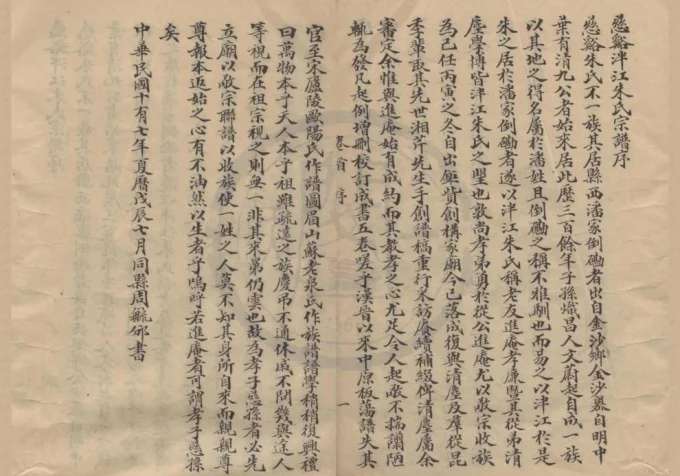 慈谿泮江朱氏宗譜序
慈谿朱氏不一族其居縣西潘家倒磡者出自金沙鄉金沙嶴自明中
葉有清九公者始來居此歷三百餘年子孫熾昌人文蔚起自成一族
以其地之得名屬於潘姓且倒磡之稱不雅馴也而易之以泮江於是
朱之居於潘家倒磡者遂以泮江朱氏稱老友進庵孝廉暨其從弟清
塵學博皆泮江朱氏之朢也敦尚孝弟勇於從公進庵尤以敬宗收族
為己任丙寅之冬自出鉅貲創構家廟今已落成復與清塵及羣從昆
季輩取其先世湘芹先生手創譜稿重行采訪賡續補綴俾清塵屬余
審定余惟與進庵始有成約而其教孝之心尤足令人起敬不揣譾陋
輒為發凡起例增刪校訂成書五卷嗟乎漢晉以來中原板蕩譜失其
卷首 序 一
官至宋廬陵歐陽氏作譜圖眉山蘇老泉氏作族譜譜學稍稍復興禮
曰萬物本乎天人本乎祖雖疏遠之族慶弔不通休戚不問幾與途人
等視而在祖宗視之則無一非其來弟仍雲也故為孝子慈孫者必先
立廟以敬宗聯譜以收族使一姓之人莫不知其身所自來而親親尊
尊報本返始之心有不油然以生者乎嗚呼若進庵者可謂孝子慈孫
矣
中華民國十有七年夏曆戊辰七月同縣周毓邠書